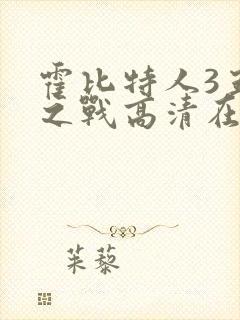 霍比特人3五
之戰高清在
茱藜